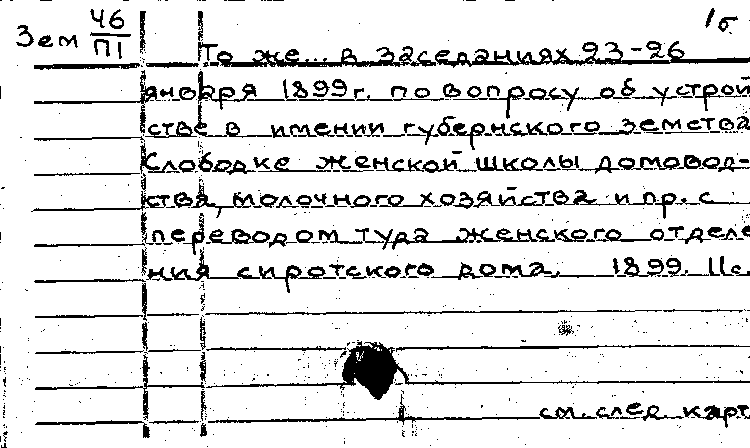 1б
Зем 46/П1
То же... в заседаниях 23-26
января 1899г. по вопросу об устрой
стве в имении губернского земства
Слободке женской школы домовод-
ства, молочного хозяйства и пр. с
переводом туда женского отделе
ния сиротского дома. 1899. 11с.
см. след. карт